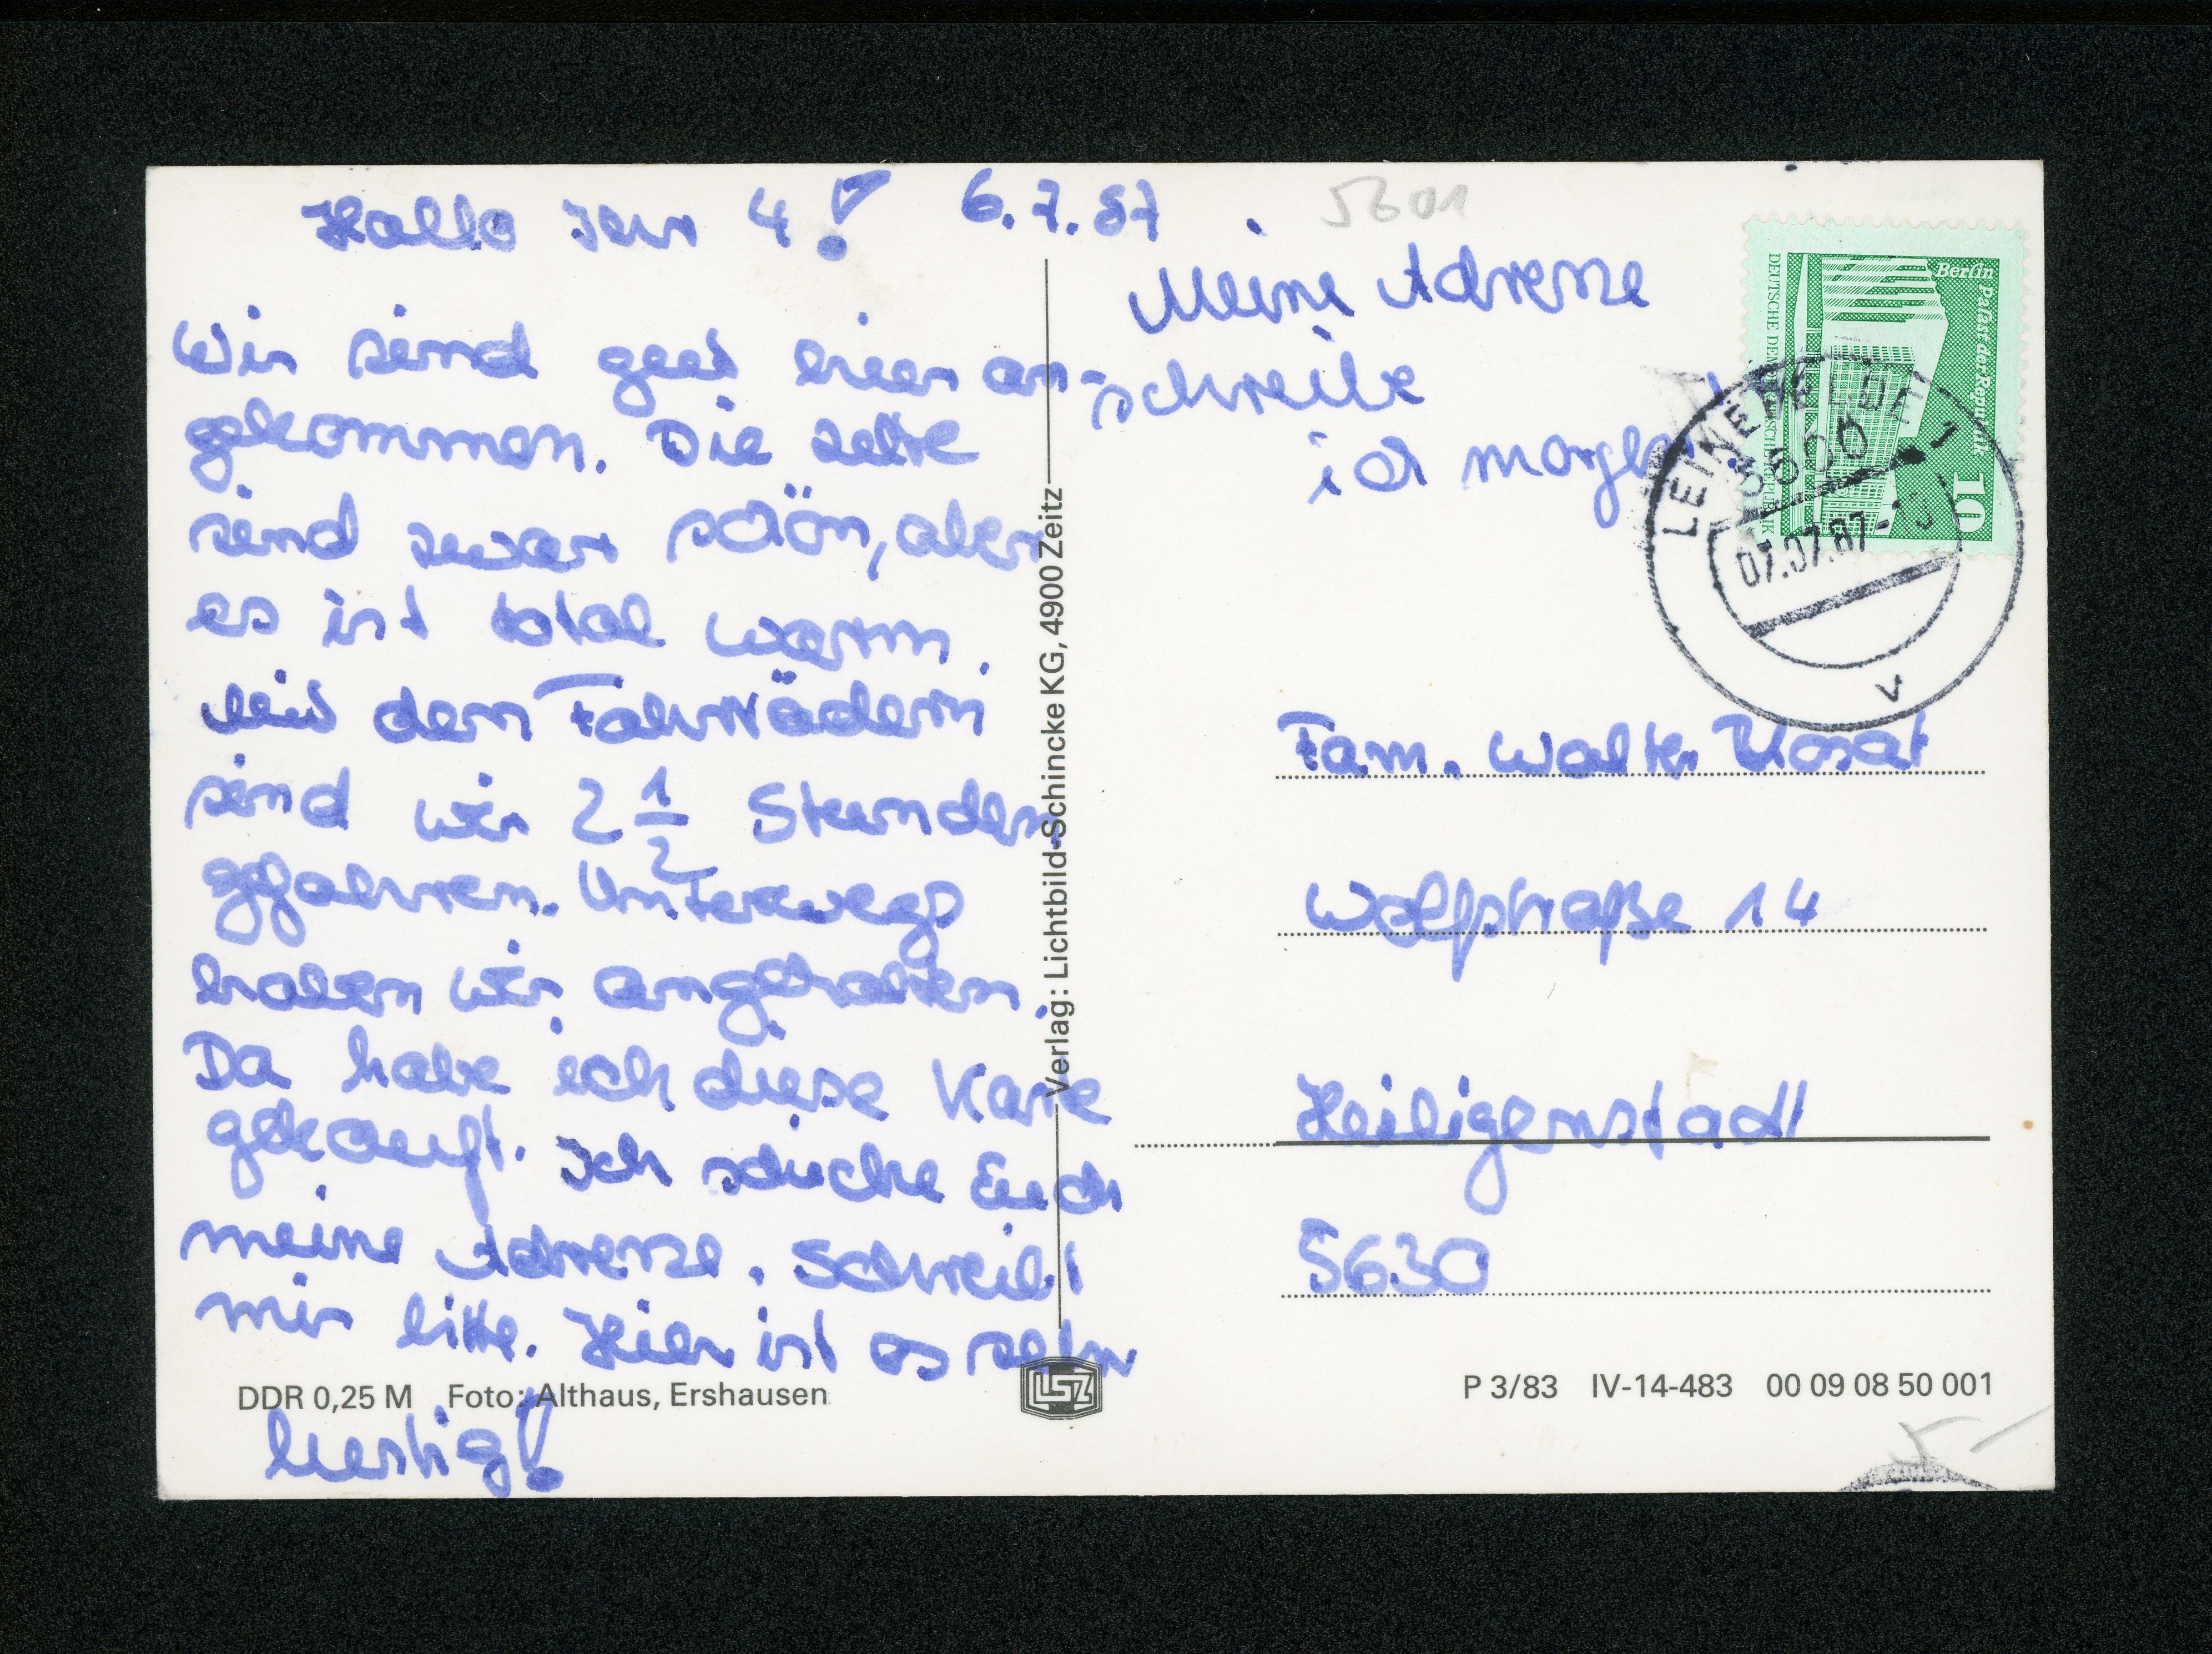 Hallo Ihr 4! 6.7.87
Wir sind gut hier an-
gekommen. Die Zelte
sind zwar schön, aber
es ist total warm.
Mit den Fahrrädern
sind wir 2 1/2 Stunden
gefahren. Unterwegs
haben wir angehalten.
Da habe ich diese Karte
gekauft. Ich schicke Euch
meine Adresse. Schreibt
mir bitte. Hier ist es sehr
lustig!
DDR 0,25 M Foto: Althaus, Ershausen
Verlag: Lichtbild-Schincke KG, 4900 Zeitz
LSZ
5601
Meine Adresse
schreibe
ich morgen
Berlin
Palast der Republik
10
DEUTSCHE DEMOKRATISCHE REPUBLIK
LEINEFELDE 1
5600
07.07.87
v
Fam. Walter
Wolfstraße 14
Heiligenstadt
5630
P 3/83 IV-14-483 00 09 08 50 001
5-